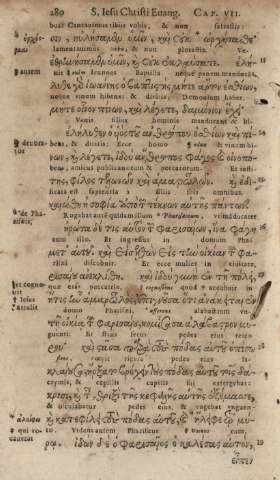 280 S. Iesu Christi Euang. CAP. VII.
bus: Cantauimus tibiis vobis, & non saltastis:
σιν, ηὐλήσαμεν ὑμῖν, καὶ οὐκ ὠρχήσασθε·
lamentauimus vobis, & non plorastis. Ve-
ἐθρηνήσαμεν ὑμῖν, καὶ οὐκ ἐκλαύσατε. ἐλή-
nit enim Ioannes Baptista neque panem manducans,
λυθε γὰρ ἰωάννης ὁ βαπτιστὴς μήτε ἄρτον ἐσθίων,
neque vinum bibens: & dicitis: Demonium habet.
μήτε οἶνον πίνων, καὶ λέγετε, δαιμόνιον ἔχει.
Venit filius hominis manducans & bi-
ἐλήλυθεν ὁ υἱὸς τοῦ ἀνθρώπου ἐσθίων καὶ πί-
bens, & dicitis: Ecce homo
νων, καὶ λέγετε, ἰδοὺ ἄνθρωπος φάγος καὶ οἰνοπό-
bens, amicus publicanorum & peccatorum. Et iusti-
της, φίλος τελωνῶν καὶ ἁμαρτωλῶν. καὶ ἐδι-
ficata est sapientia a filiis suis omnibus
καιώθη ἡ σοφία ἀπὸ τῶν τέκνων αὐτῆς πάντων.
Rogabat autem quidam illum Pharisæorum, vt manducaret
ἠρώτα δέ τις αὐτὸν τῶν φαρισαίων, ἵνα φάγῃ
cum illo. Et ingressus in domum Phari-
μετ' αὐτοῦ. καὶ εἰσελθὼν εἰς τὴν οἰκίαν τοῦ φα-
sæi discubuit. Et ecce mulier in ciuitate,
ρισαίου ἀνεκλίθη. καὶ ἰδοὺ γυνὴ ἐν τῇ πόλει,
quæ erat peccatrix, cognouit quod accubuit in
ἥτις ἦν ἁμαρτωλός, ἐπιγνοῦσα ὅτι ἀνάκειται ἐν
domo Pharisæi, afferens alabastrum vn-
τῇ οἰκίᾳ τοῦ φαρισαίου, κομίσασα ἀλάβαστρον μυ-
guenti: Et stans retro pedes eius retro
ρου· καὶ στᾶσα παρὰ τοὺς πόδας αὐτοῦ ὀπίσω
flens, cœpit rigare pedes eius
κλαίουσα, ἤρξατο βρέχειν τοὺς πόδας αὐτοῦ τοῖς δά-
crymis, & capillis capitis sui extergebat:
κρυσι, καὶ ταῖς θριξὶ τῆς κεφαλῆς αὐτῆς ἐξέμασσε,
& osculabatur pedes eius, & vnguento vngebat
καὶ κατεφίλει τοὺς πόδας αὐτοῦ, καὶ ἤλειφε τῷ μύ-
Videns autem Pharisæus qui vocauerat eum,
ρῳ. ἰδὼν δὲ ὁ φαρισαῖος ὁ καλέσας αὐτὸν,